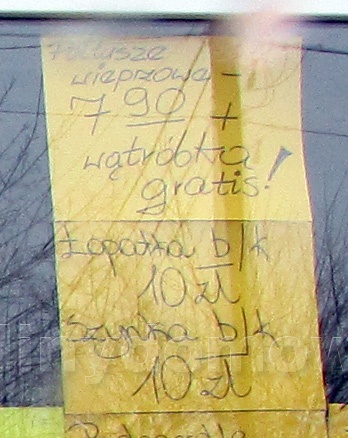 wieprzowe -
7 90 +
wątróbka
gratis!
Łopatka b/k
10 zł
Szynka b/k
10 zł